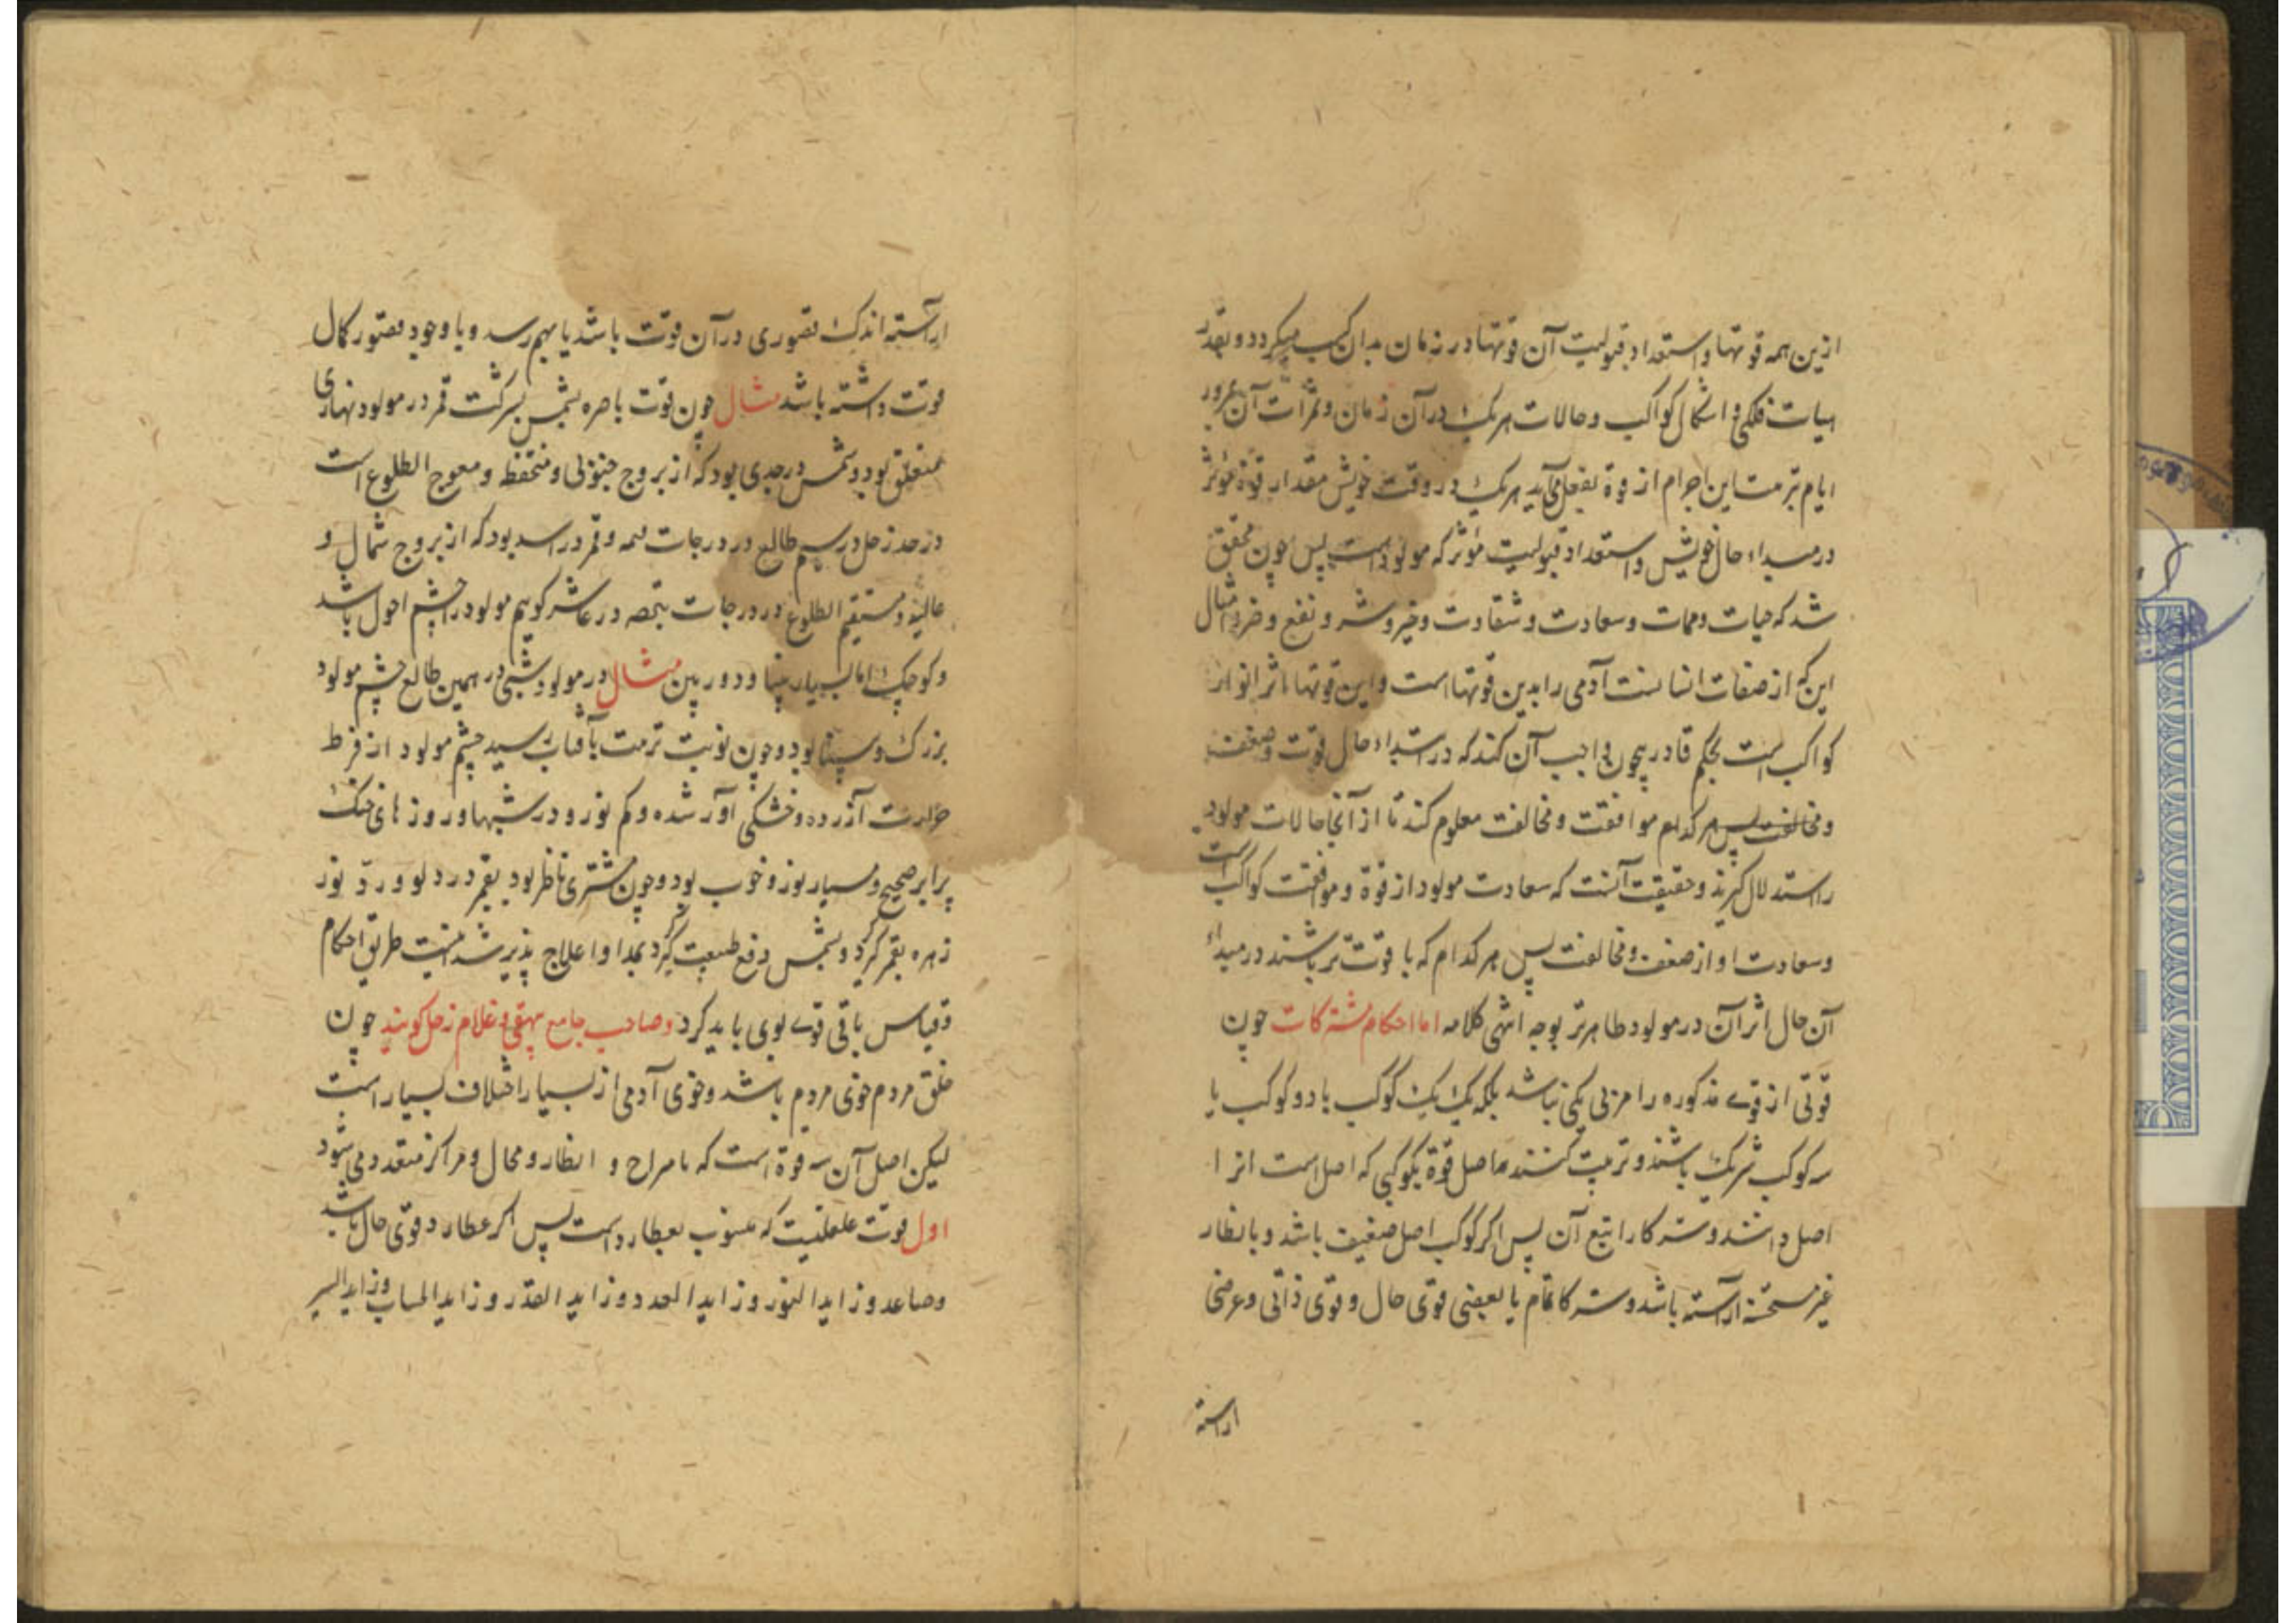 ازین همه قوتها و استعداد قبولیت آن قوتها در زمان بدان کسب میکردد و بقدر
هیات فلکی و اشکال کواکب و حالات هریک در آن زمان و ثمرات آن بمرور
ایام بتربیت این اجرام از قوة بفعل می‌آید هریک در وقت خویش مقدار قوة مؤثر
در مبداء حال خویش و استعداد قبولیت مؤثر که مولود است پس چون محقق
شد که حیات و ممات و سعادت و شقاوت و خیر و شر و نفع و ضرر و امثال
این که از صفات انسانست آدمی را بدین قوتها است و این قوتها اثر انوار
کواکب است بحکم قادر بیچون واجب آن کند که در ابتداء حال قوت و ضعف
و مخالفت پس هر کدام موافقت و مخالفت معلوم کند تا از آنجا حالات مولود
راستدلال کیرند و حقیقت آنست که سعادت مولود از قوة و موافقت کواکب است
و سعادت او از ضعف و مخالفت پس هر کدام که با قوت تر باشند در مبداء
آن حال اثر آن در مولود ظاهرتر بوجه انتهی کلامه اما احکام مشترکات چون
قوتی از قوے مذکوره را مربی یکی نباشد بلکه یک یک کوکب با دو کوکب یا
سه کوکب شریک باشند و تربیت کنند حاصل قوة بکوکبی که اصل است انرا
اصل دانند و شرکا را تبع آن پس اکر کوکب اصل ضعیف باشد و بانظار
غیر مستحسنه اراسته باشد و شرکا تمام یا بعضی قوی حال و قوی ذاتی و عرضی
اراسته
اراسته اندک قصوری در آن قوت باشد یا بهم رسد و با وجود قصور کمال
قوت داشته باشد مثال چون قوت باصره بشمس بشرکت قمر در مولود نهاری
متعلق بود و شمس در جدی بود که از بروج جنوبی و منخفظ و معوج الطلوع است
در حد زحل در سیم طالع در درجات قمه و قمر در اسد بود که از بروج شمالی و
عالیه و مستقیم الطلوع در درجات در عاشر کوییم مولود را چشم احول باشد
و کوچک اما بسیار بینا و دوربین مثال در مولود شبی در همین طالع چشم مولود
بزرک و بینا بود و چون نوبت تربیت بآفتاب رسید چشم مولود از فرط
حرارت آزرده و خشکی آور شده و کم نور و در شبها و روزهای خنک
برابر صحیح و بسیار نور و خوب بود و چون مشتری ناظر بود بقمر در دلو و رد نور
زهره بقمر کرد و بشمس دفع طبیعت کرد بمداوا علاج پذیر شد اینست طریق احکام
و قیاس باقی قوے بوی باید کرد و صاحب جامع بیهقی و غلام زحل کویند چون
خلق مردم خوی مردم باشد و خوی آدمی از بسیار اختلاف بسیار است
لیکن اصل آن سه قوة است که بامزاج و انظار و محال و مراکز متعدد می شود
اول قوت عقلیت که منسوب بعطارد است پس اکر عطارد قوی حال باشد
و صاعد و زاید النور و زاید العدد و زاید القدر و زاید الحساب و زاید السیر